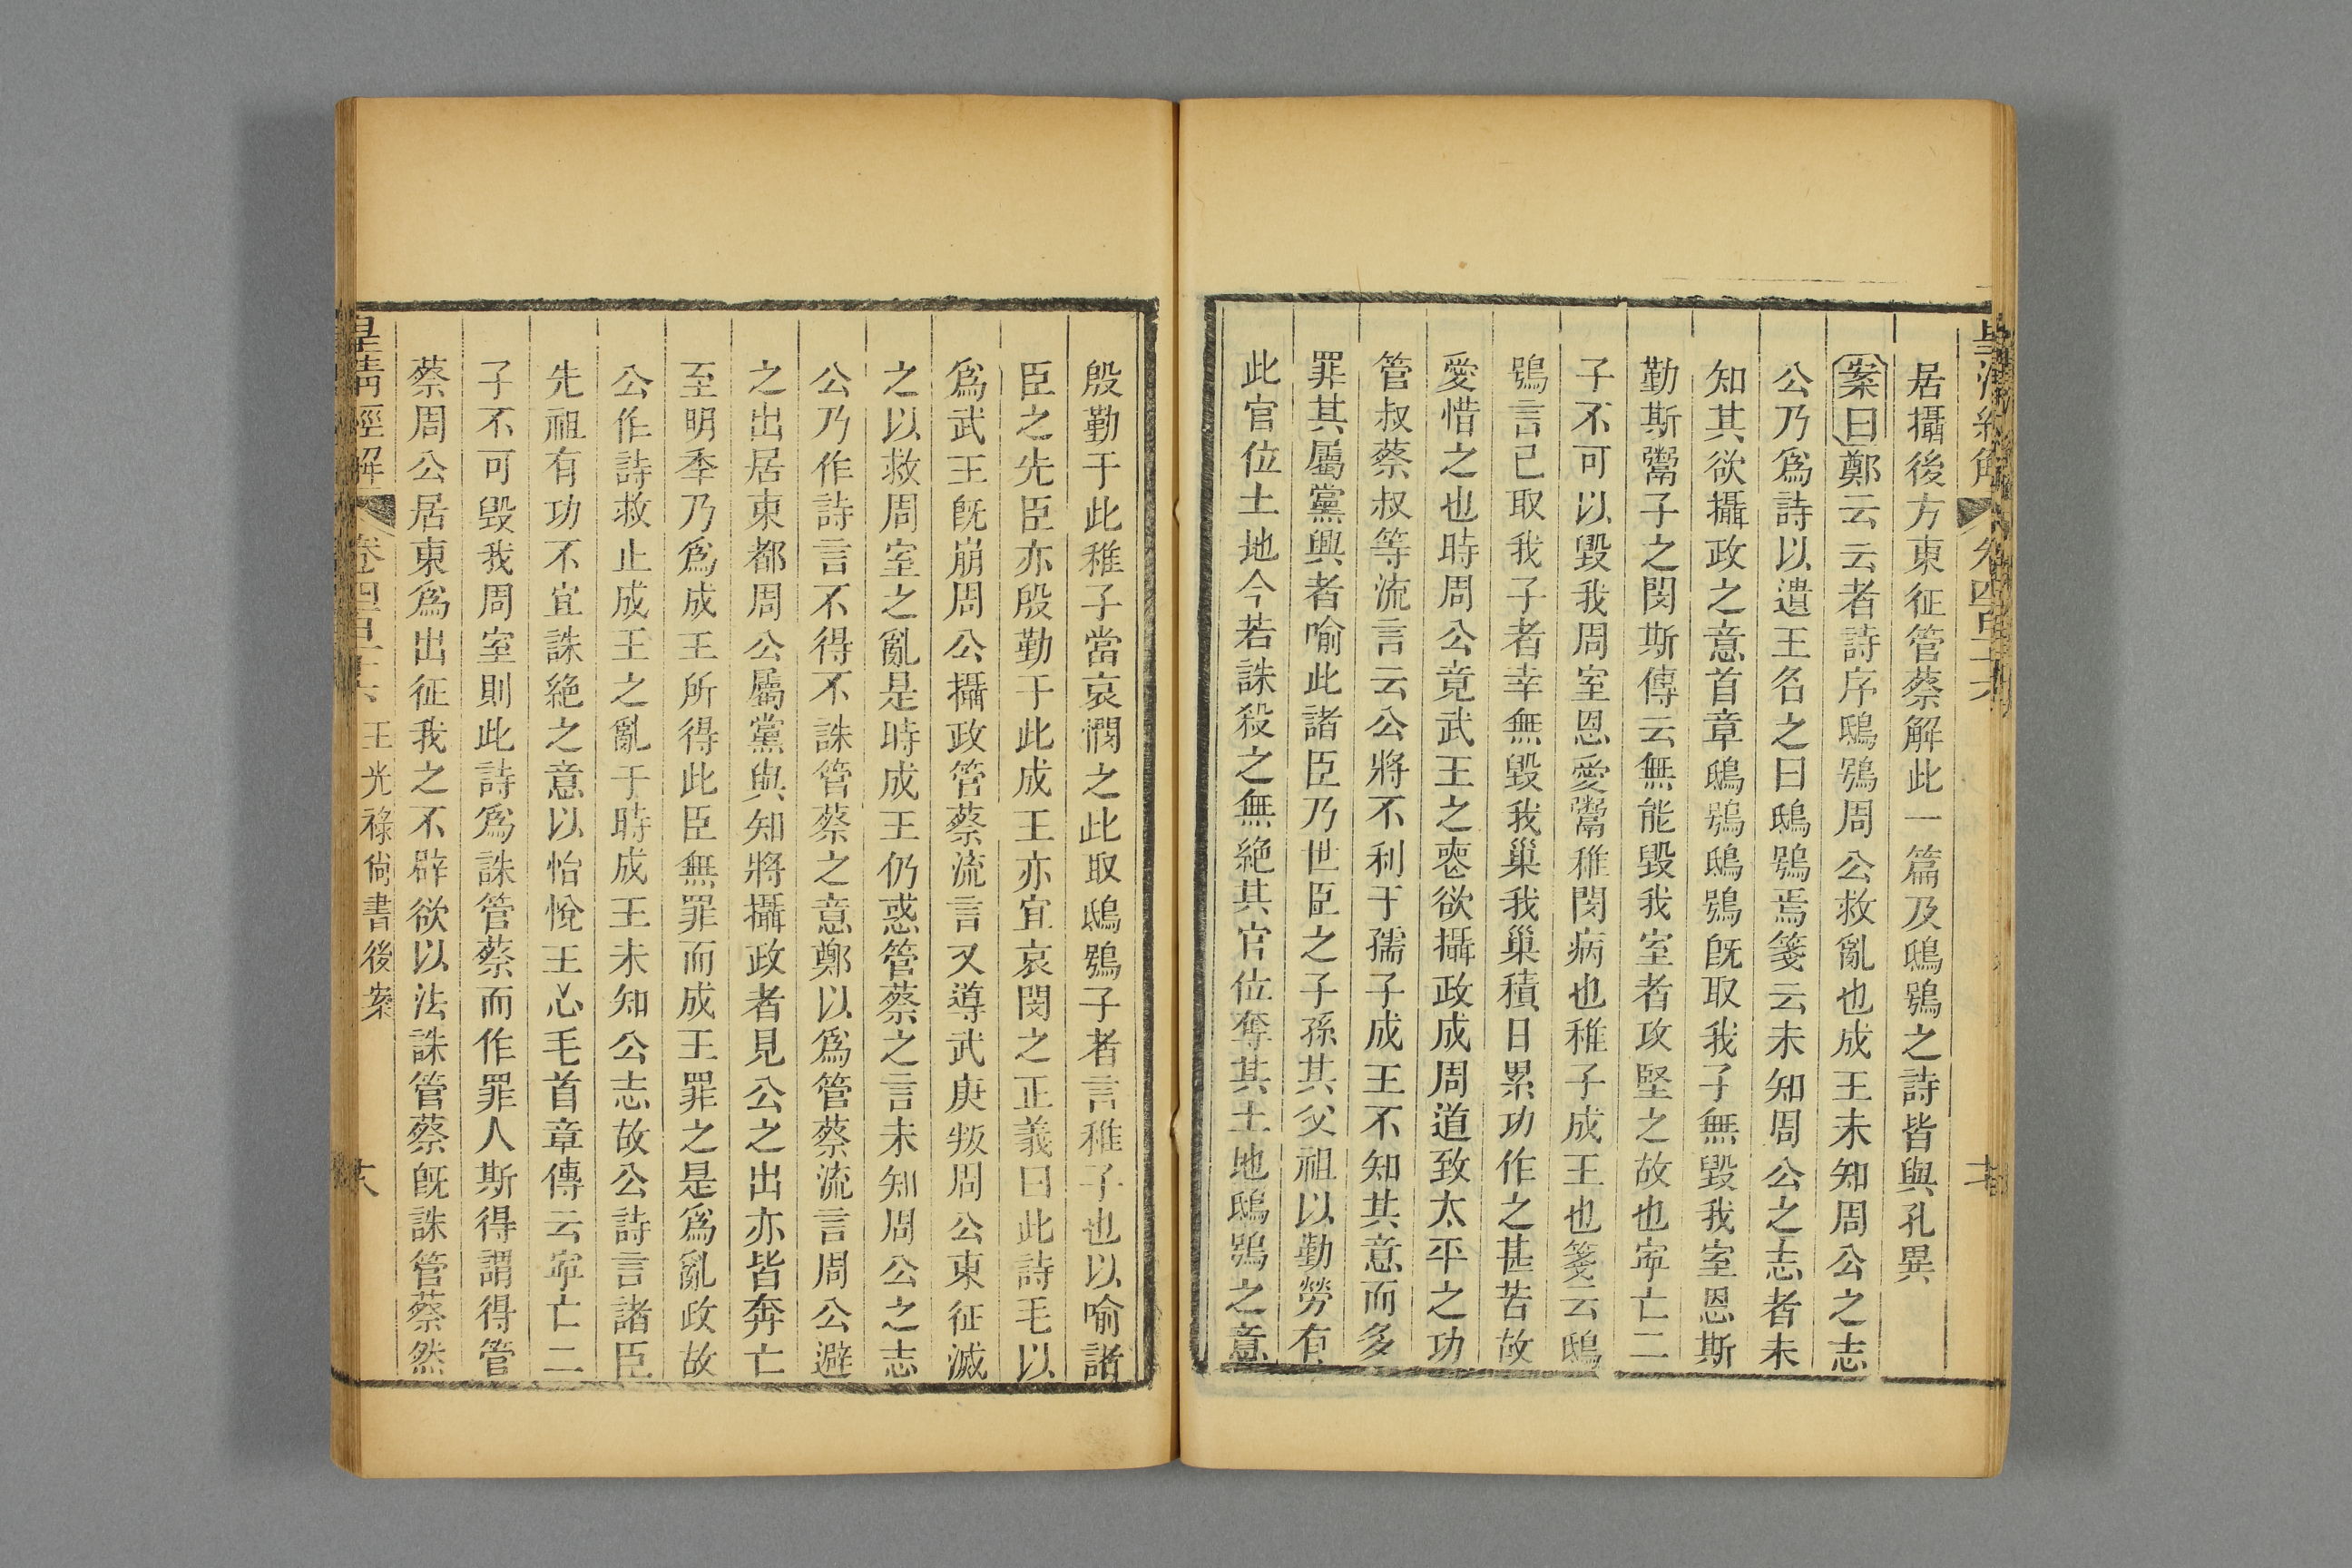 皇清經解
卷四百十六
居攝後方東征管蔡解此一篇及鴟鴞之詩皆與孔異
案曰鄭云云者詩序鴟鴞周公救亂也成王未知周公之志
公乃爲詩以遺王名之曰鴟鴞焉箋云未知周公之志者未
知其欲攝政之意首章鴟鴞鴟鴞旣取我子無毀我室恩斯
勤斯鬻子之閔斯傳云無能毀我室者攻堅之故也寜亡二
子不可以毀我周室恩愛鬻稚閔病也稚子成王也箋云鴟
鴞言已取我子者幸無毀我巢我巢積日累功作之甚苦故
愛惜之也時周公竟武王之喪欲攝政成周道致太平之功
管叔蔡叔等流言云公將不利于孺子成王不知其意而多
罪其屬黨興者喻此諸臣乃世臣之子孫其父祖以勤勞有
此官位土地今若誅殺之無絕其官位奪其土地鴟鴞之意
殷勤于此稚子當哀憫之此取鴟鴞子者言稚子也以喻諸
臣之先臣亦殷勤于此成王亦宜哀閔之正義曰此詩毛以
爲武王旣崩周公攝政管蔡流言又導武庚叛周公東征滅
之以救周室之亂是時成王仍惑管蔡之言未知周公之志
公乃作詩言不得不誅管蔡之意鄭以爲管蔡流言周公避
之出居東都周公屬黨與知將攝政者見公之出亦皆奔亡
至明年乃爲成王所得此臣無罪而成王罪之是爲亂政故
公作詩救止成王之亂于時成王未知公志故公詩言諸臣
先祖有功不宜誅絕之意以怡悅王心毛首章傳云寜亡二
子不可毀我周室則此詩爲誅管蔡而作罪人斯得謂得管
蔡周公居東爲出征我之不辟欲以法誅管蔡旣誅管蔡然
皇清經解
卷四百十六
王光祿尙書後案